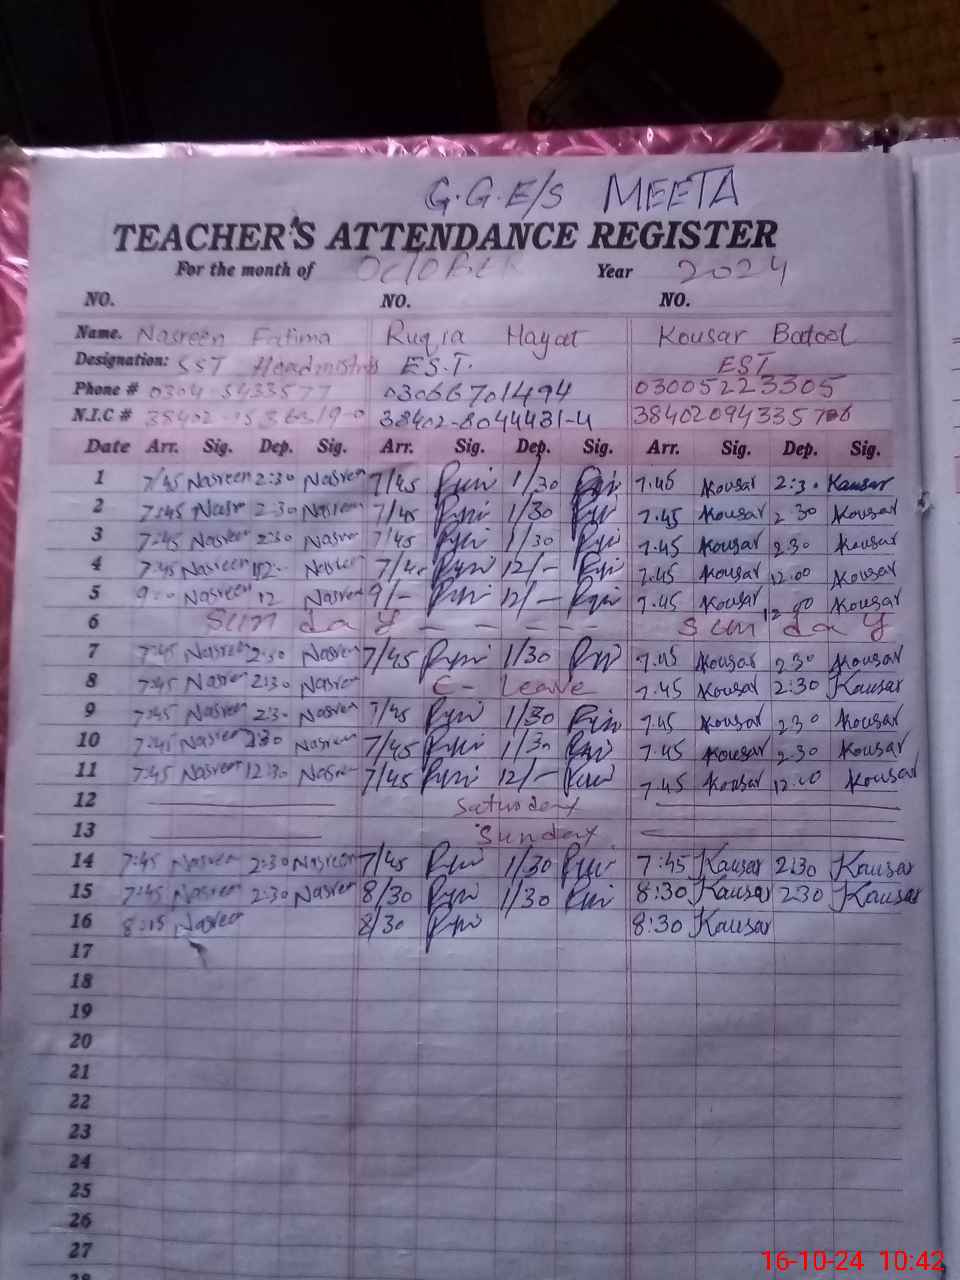 G.G.E/S MEETA
TEACHER'S ATTENDANCE REGISTER
For the month of October Year 2024
NO. NO. NO.
Name. Nasreen Fatima Ruqia Hayat Kousar Batool
Designation: SST Headmistris E.S.T. EST
Phone # 0304-5433577 03066701494 03005223305
N.I.C # 38402-8044431-4
Date Arr. Sig. Dep. Sig. Arr. Sig. Dep. Sig. Arr. Sig. Dep. Sig.
1 7/45 Nasreen 2:30 Nasreen 7/45 1/30 7.45 Kousar 2:30 Kausar
2 7:45 Nasr 2:30 Nasreen 7/45 1/30 7.45 Kousar 2 30 Kousar
3 7:45 Nasreen 2:30 Nasrn 7/45 1/30 7.45 Kousar 2 30 Kousar
4 7:45 Nasreen 12 Nasreen 7/45 12/- 7.45 Kousar 12.00 Kousar
5 9:0 Nasreen 12 Nasreen 9/- 12/- 7.45 Kousar 12 00 Kousar
6 Sunday - - - - - - Sunday
7 7:45 Nasreen 2:30 Nasreen 7/45 1/30 7.45 Kousar 2 30 Kousar
8 7:45 Nasreen 2:30 Nasreen C- Leave 7.45 Kousar 2:30 Kausar
9 7:45 Nasreen 2:30 Nasreen 7/45 1/30 7.45 Kousar 2 30 Kousar
10 7:45 Nasreen 2:30 Nasreen 7/45 1/30 7.45 Kousar 2.30 Kousar
11 7:45 Nasreen 12:30 Nasreen 7/45 12/- 7.45 Kousar 12.00 Kousar
12 Saturday
13 Sunday
14 7:45 Nasreen 2:30 Nasreen 7/45 1/30 7:45 Kausar 2:30 Kousar
15 7:45 Nasreen 2:30 Nasreen 8/30 1/30 8:30 Kausar 2:30 Kausar
16 8:15 Nasreen 8/30 8:30 Kausar
17
18
19
20
21
22
23
24
25
26
27
28
16-10-24 10:42